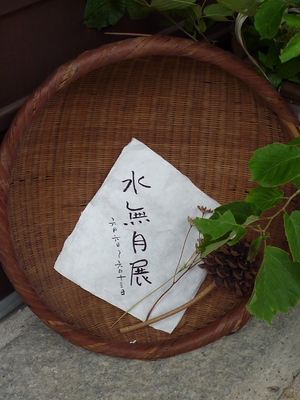 水無月展
六月六日〜六月十三日